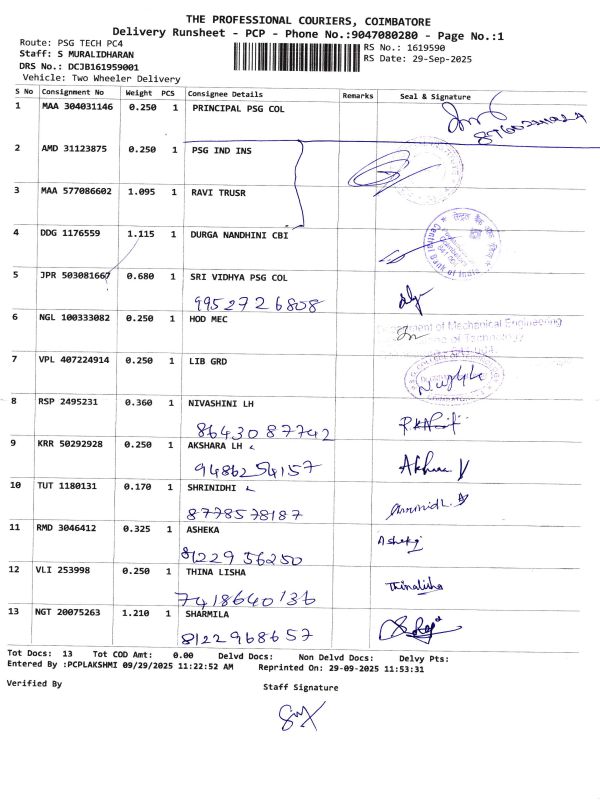 THE PROFESSIONAL COURIERS, COIMBATORE
Delivery Runsheet - PCP - Phone No.:9047080280 - Page No.:1
Route: PSG TECH PC4
Staff: S MURALIDHARAN
RS No.: 1619590
DRS No.: DCJB161959001
RS Date: 29-Sep-2025
Vehicle: Two Wheeler Delivery
S No Consignment No Weight PCS Consignee Details Remarks Seal & Signature
1 MAA 304031146 0.250 1 PRINCIPAL PSG COL
2 AMD 31123875 0.250 1 PSG IND INS
3 MAA 577086602 1.095 1 RAVI TRUSR
4 DDG 1176559 1.115 1 DURGA NANDHINI CBI
Central Bank of India
5 JPR 503081667 0.680 1 SRI VIDHYA PSG COL
9952726808
6 NGL 100333082 0.250 1 HOD MEC
of Mechanical Engineering
of Technology
7 VPL 407224914 0.250 1 LIB GRD
8 RSP 2495231 0.360 1 NIVASHINI LH
8643087742
9 KRR 50292928 0.250 1 AKSHARA LH
9486254157
10 TUT 1180131 0.170 1 SHRINIDHI
8778578187
11 RMD 3046412 0.325 1 ASHEKA
8122956250
12 VLI 253998 0.250 1 THINA LISHA Thinalisha
7418640136
13 NGT 20075263 1.210 1 SHARMILA
8122968657
Tot Docs: 13 Tot COD Amt: 0.00 Delvd Docs: Non Delvd Docs: Delvy Pts:
Entered By :PCPLAKSHMI 09/29/2025 11:22:52 AM Reprinted On: 29-09-2025 11:53:31
Verified By
Staff Signature